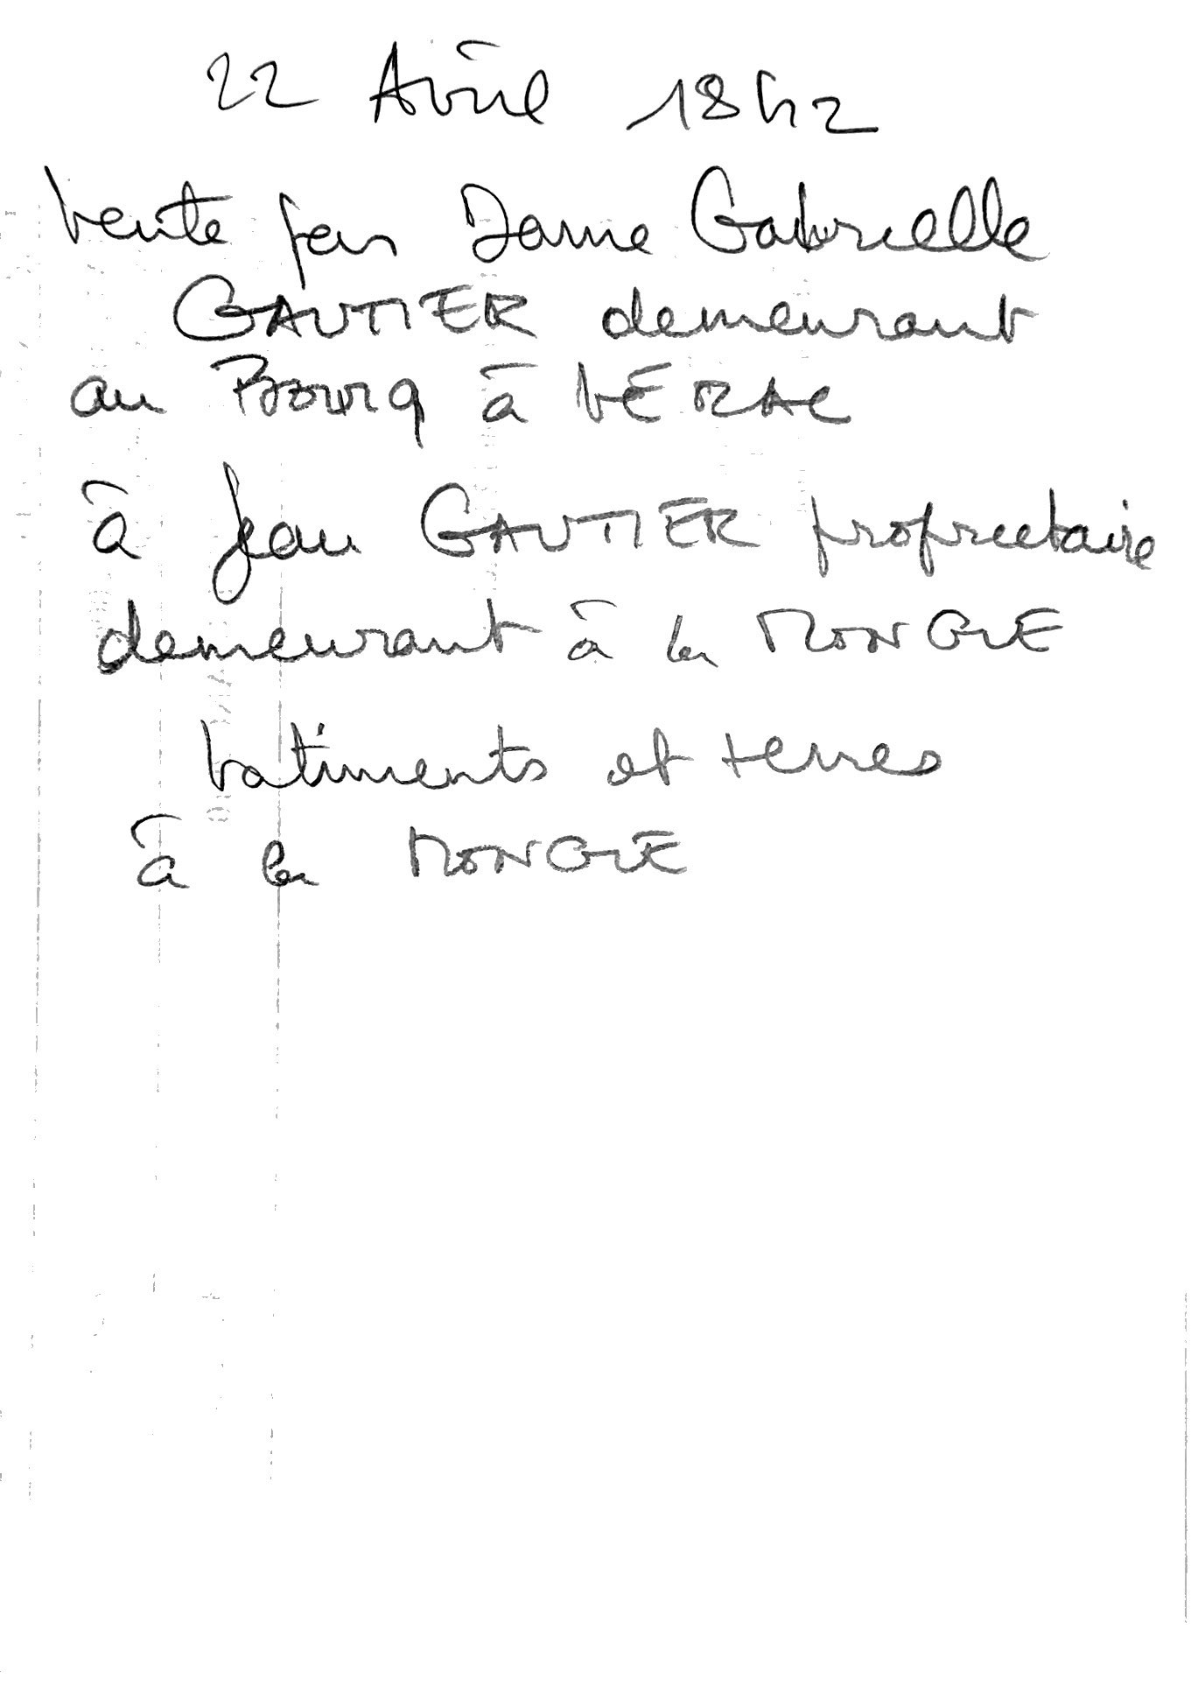 22 Avril 1842
Vente par Dame Gabrielle
GAUTIER demeurant
au Bourg à VÉRAC
à Jean GAUTIER propriétaire
demeurant à la MONGIE
batiments et terres
à la MONGIE